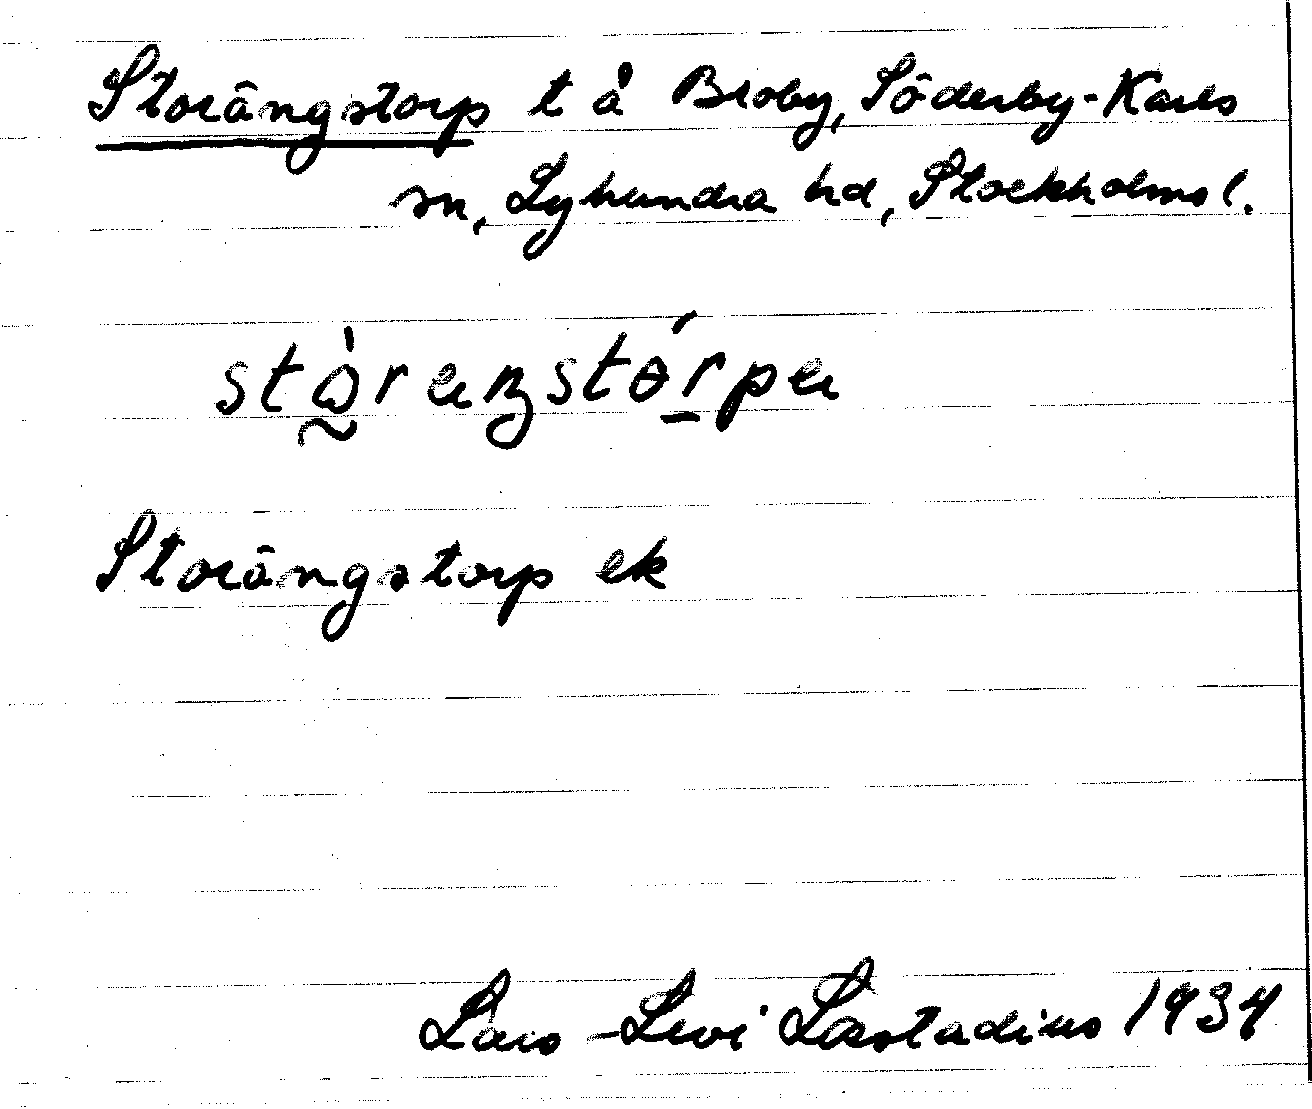 Storängstorp t å Broby, Söderby-Karls
sn, Lyhundra hd, Stockholms l.
Storängstorp ek
Lars-Levi Læstadius 1934